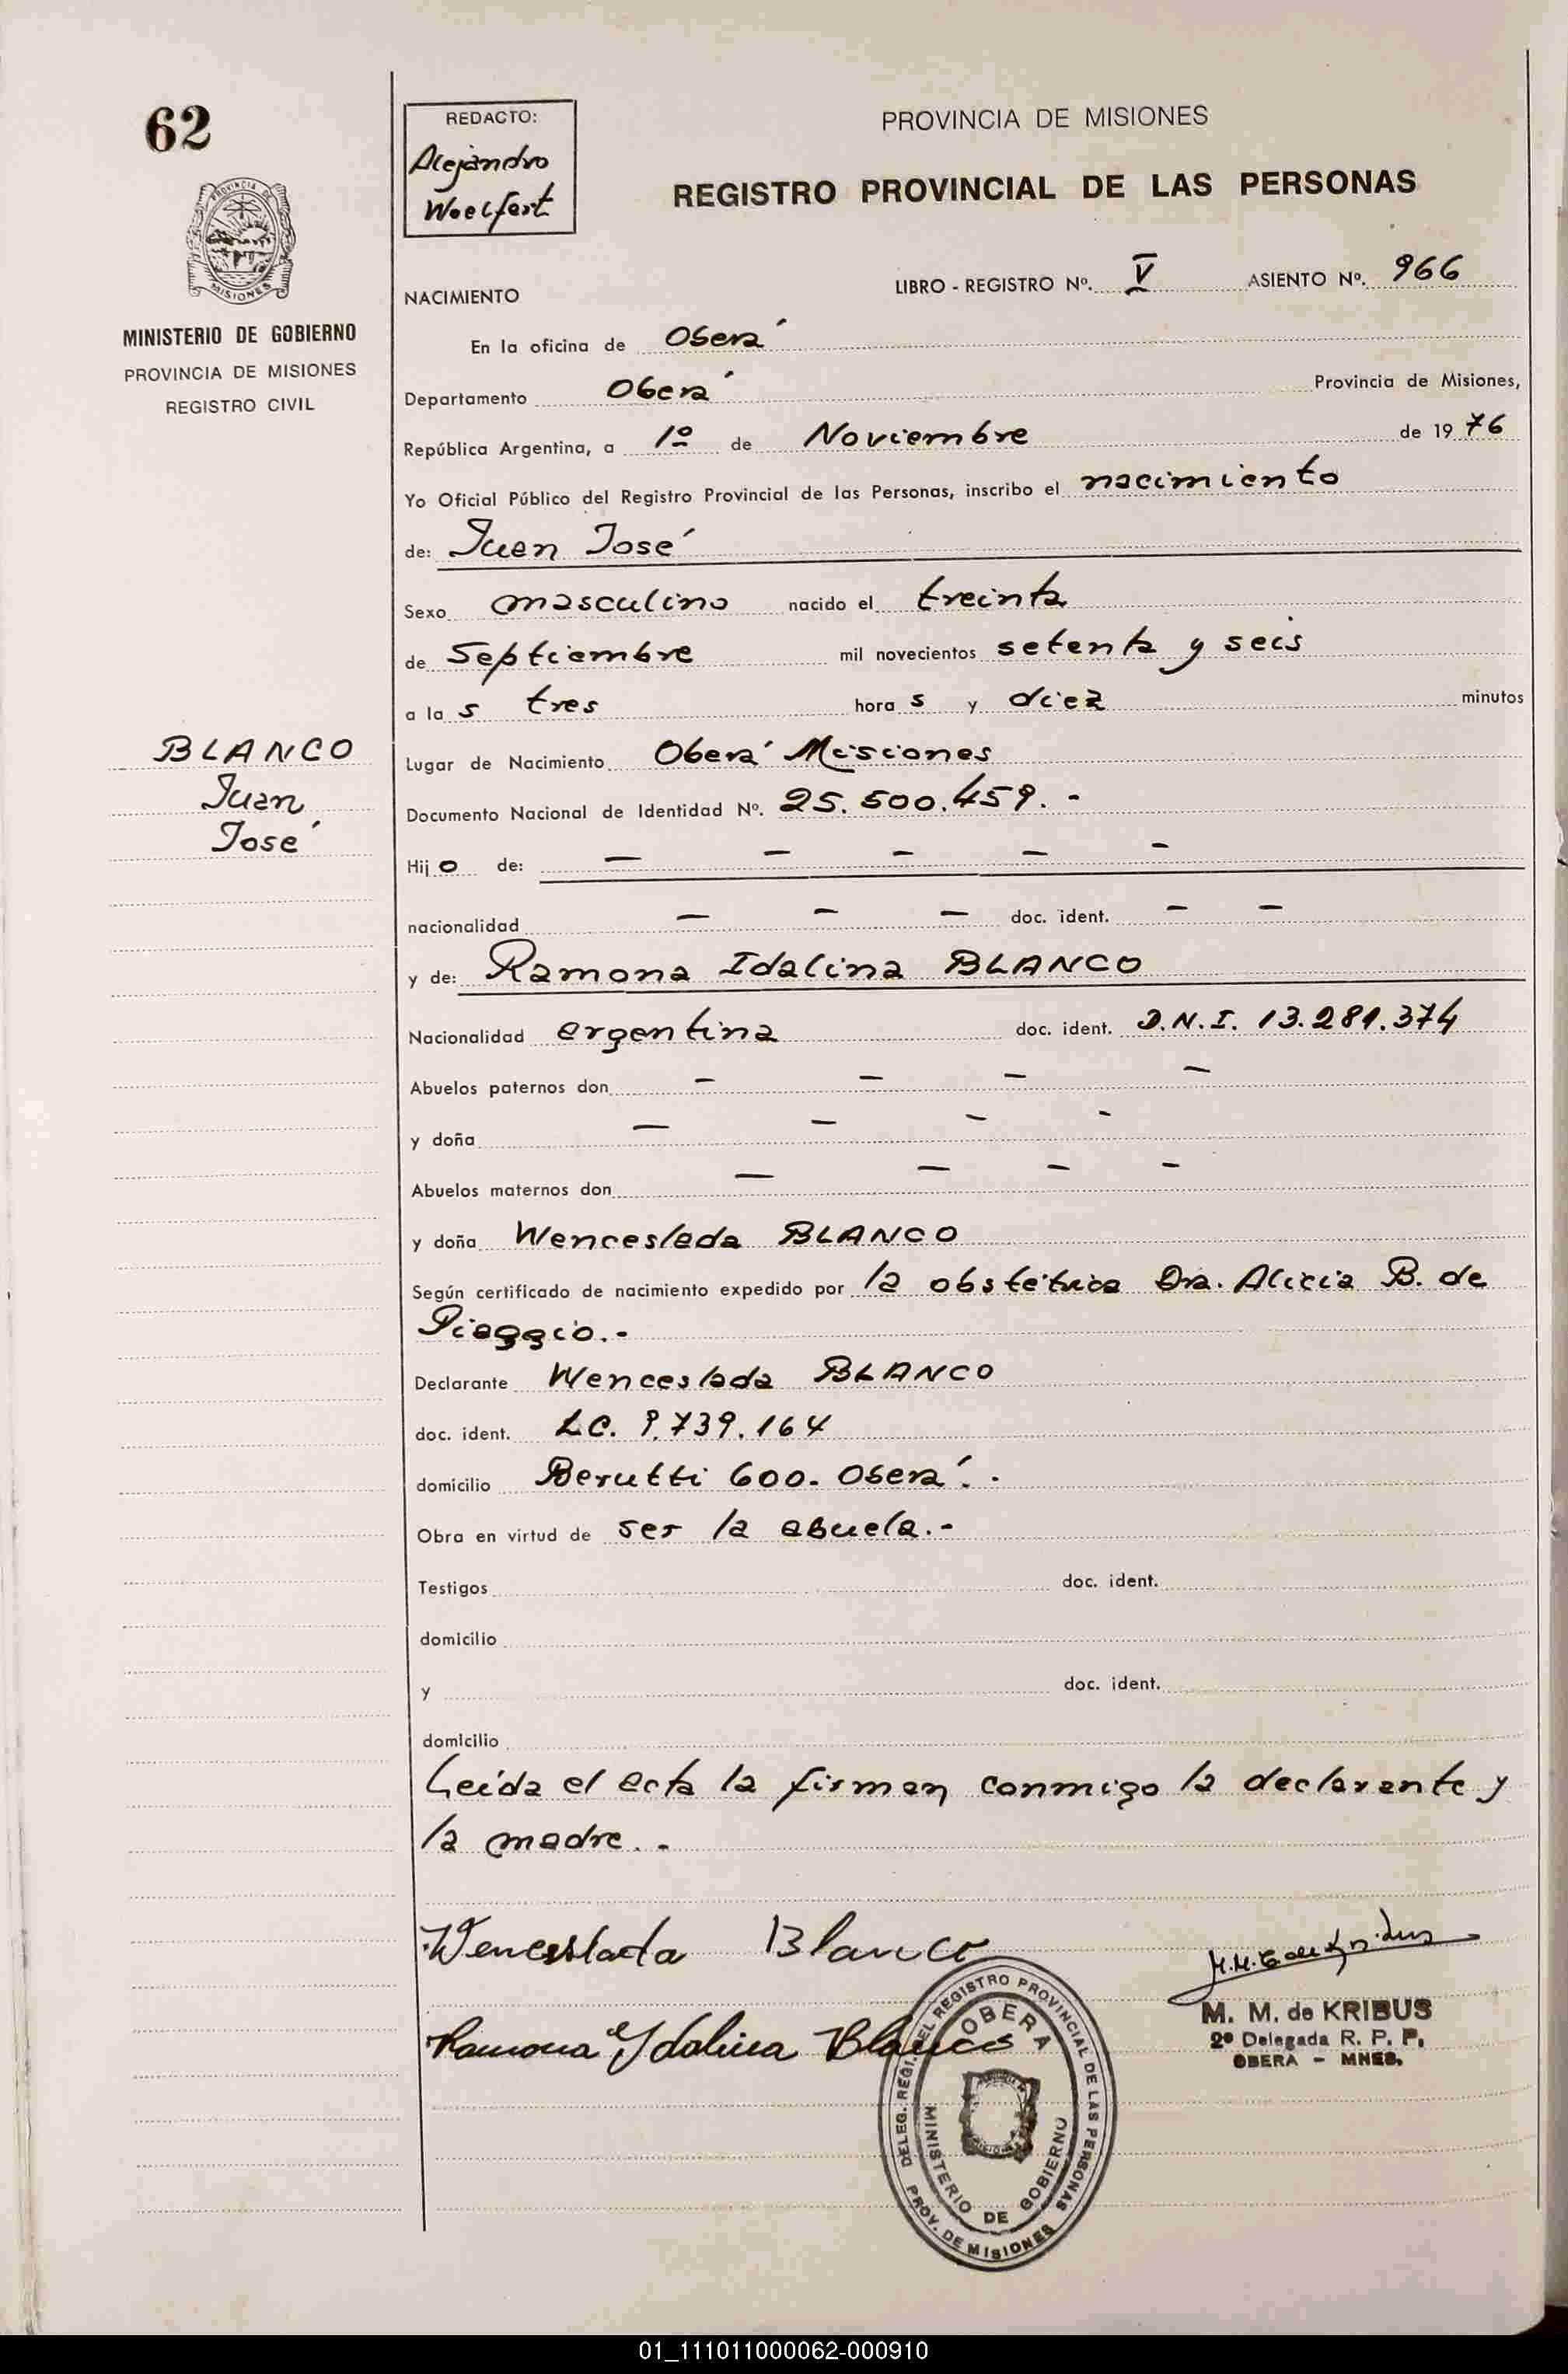 62
PROVINCIA DE MISIONES
MINISTERIO DE GOBIERNO
PROVINCIA DE MISIONES
REGISTRO CIVIL
BLANCO
Juan
José
REDACTO:
Alejandro
Woelfert
PROVINCIA DE MISIONES
REGISTRO PROVINCIAL DE LAS PERSONAS
LIBRO - REGISTRO Nº. V ASIENTO Nº. 966
NACIMIENTO
En la oficina de Oberá
Departamento Oberá Provincia de Misiones,
República Argentina, a 1º de Noviembre de 1976
Yo Oficial Público del Registro Provincial de las Personas, inscribo el nacimiento
de: Juan José
Sexo masculino nacido el treinta
de Septiembre mil novecientos setenta y seis
a la s tres hora s y diez minutos
Lugar de Nacimiento Oberá Misiones
Documento Nacional de Identidad Nº. 25.500.459. -
Hij o de: — — — — —
nacionalidad — — — doc. ident. — —
y de: Ramona Idalina BLANCO
Nacionalidad argentina doc. ident. D.N.I. 13.281.374
Abuelos paternos don — — — —
y doña — — — —
Abuelos maternos don — — — —
y doña Wenceslada BLANCO
Según certificado de nacimiento expedido por la obstétrica Dra. Alicia B. de
Piaggio.-
Declarante Wenceslada BLANCO
doc. ident. LC. 9.739.164
domicilio Berutti 600. Oberá. -
Obra en virtud de ser la abuela.-
Testigos doc. ident.
domicilio
y doc. ident.
domicilio
Leída el acta la firman conmigo la declarante y
la madre. -
Wenceslada Blanco
Ramona Ydalina Blanco
M. M. de KRIBUS
2º Delegada R. P. P.
OBERA - MNES.
DELEG. REGI. DEL REGISTRO PROVINCIAL DE LAS PERSONAS
OBERA
MINISTERIO DE GOBIERNO
PROV. DE MISIONES
01_111011000062-000910